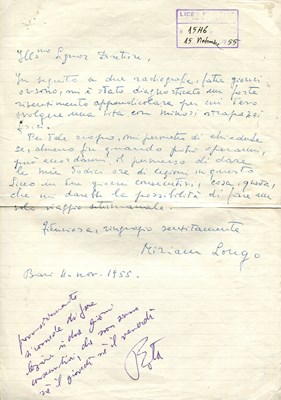 LICEO
N° 1546
15 Novembre 1955
Ill.mo Signor Direttore,
In seguito a due radiografie, fatte giorni
or sono, mi è stato diagnosticato un forte
risentimento appendicolare per cui devo
svolgere una vita con minori strapazzi
fisici.
Per tale scopo, mi permetto di chiederle
se, almeno fin quando potrò operarmi,
può accordarmi il permesso di dare
le mie dodici ore di lezioni in questo
Liceo in tre giorni consecutivi, cosa, questa,
che mi darebbe la possibilità di fare un
solo viaggio settimanale.
Fiduciosa, ringrazio sentitamente
Miriam Longo
Bari 11-nov-1955.
provvisoriamente
si concede di fare
lezione in due giorni
consecutivi, che non siano
nè il giovedì nè il venerdì
Rota